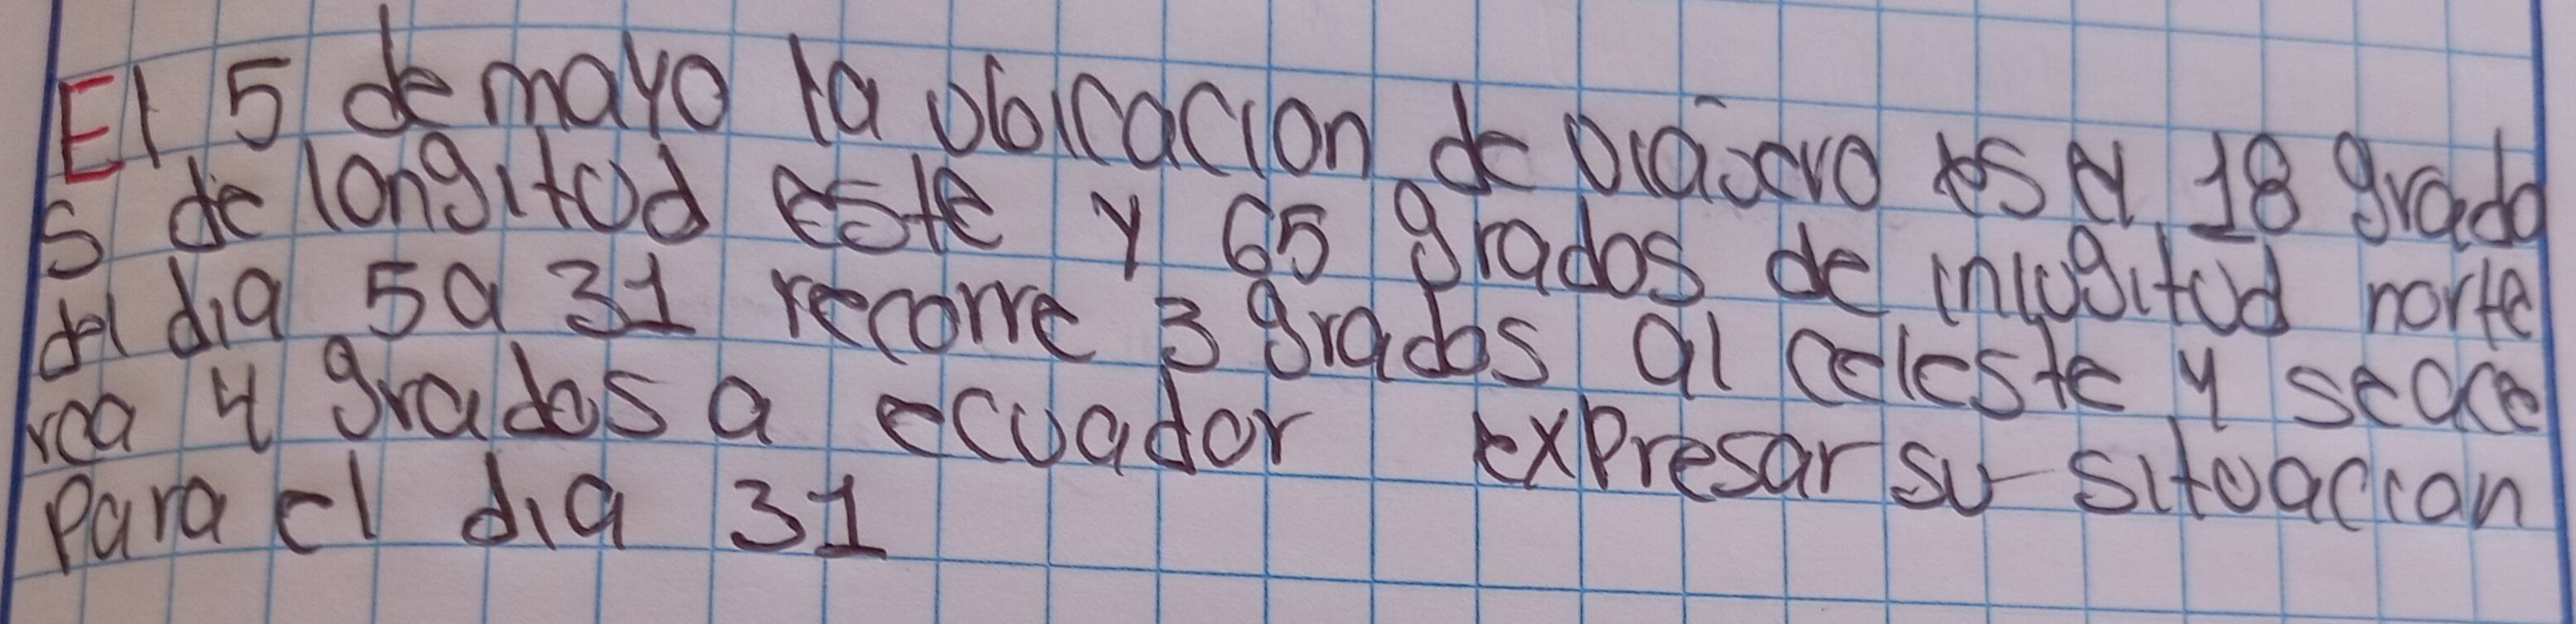 El 5 de mayo la ubicacion de un es el 18 grado
s de longitud este y 65 grados de inlugitud norte
del dia 5 a 31 recorre 3 grados al celeste y se ace
rca 4 grados a ecuador expresar su situacion
para el dia 31